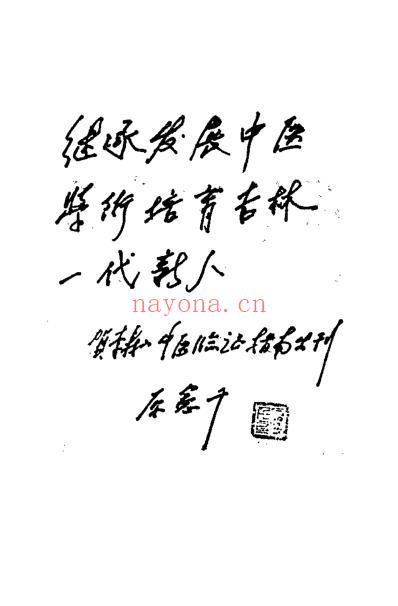 继承发展中医
学术培育杏林
一代新人
nayona.cn
贺李寿山中医临证指南出刊